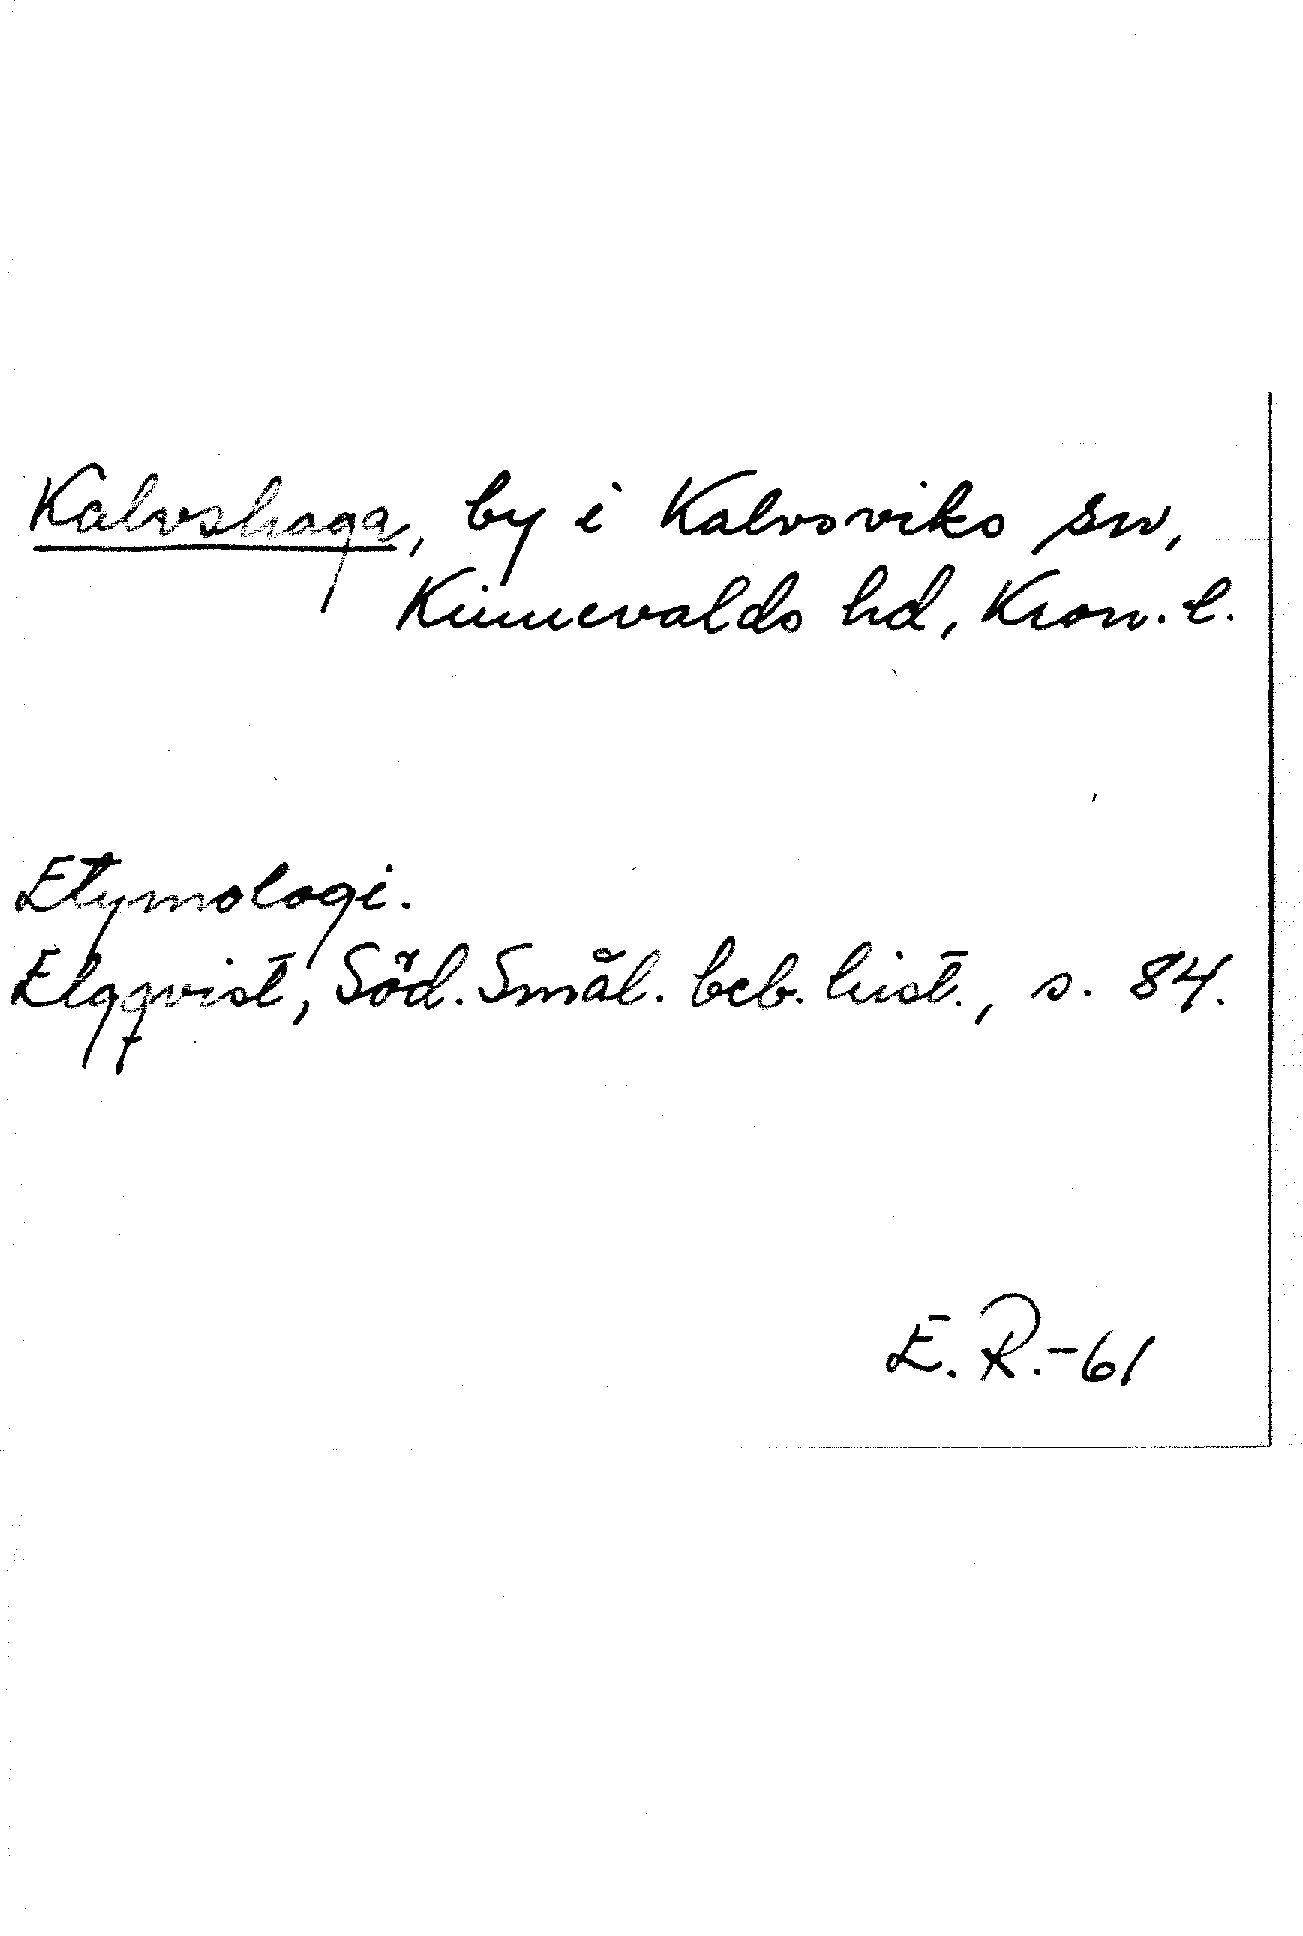 Kalvshaga, by i Kalvsviks sn,
Kinnevalds hd, Kron. l.
Etymologi.
Elgqvist, Söd. Smål. beb. hist., s. 84.
E. R.-61